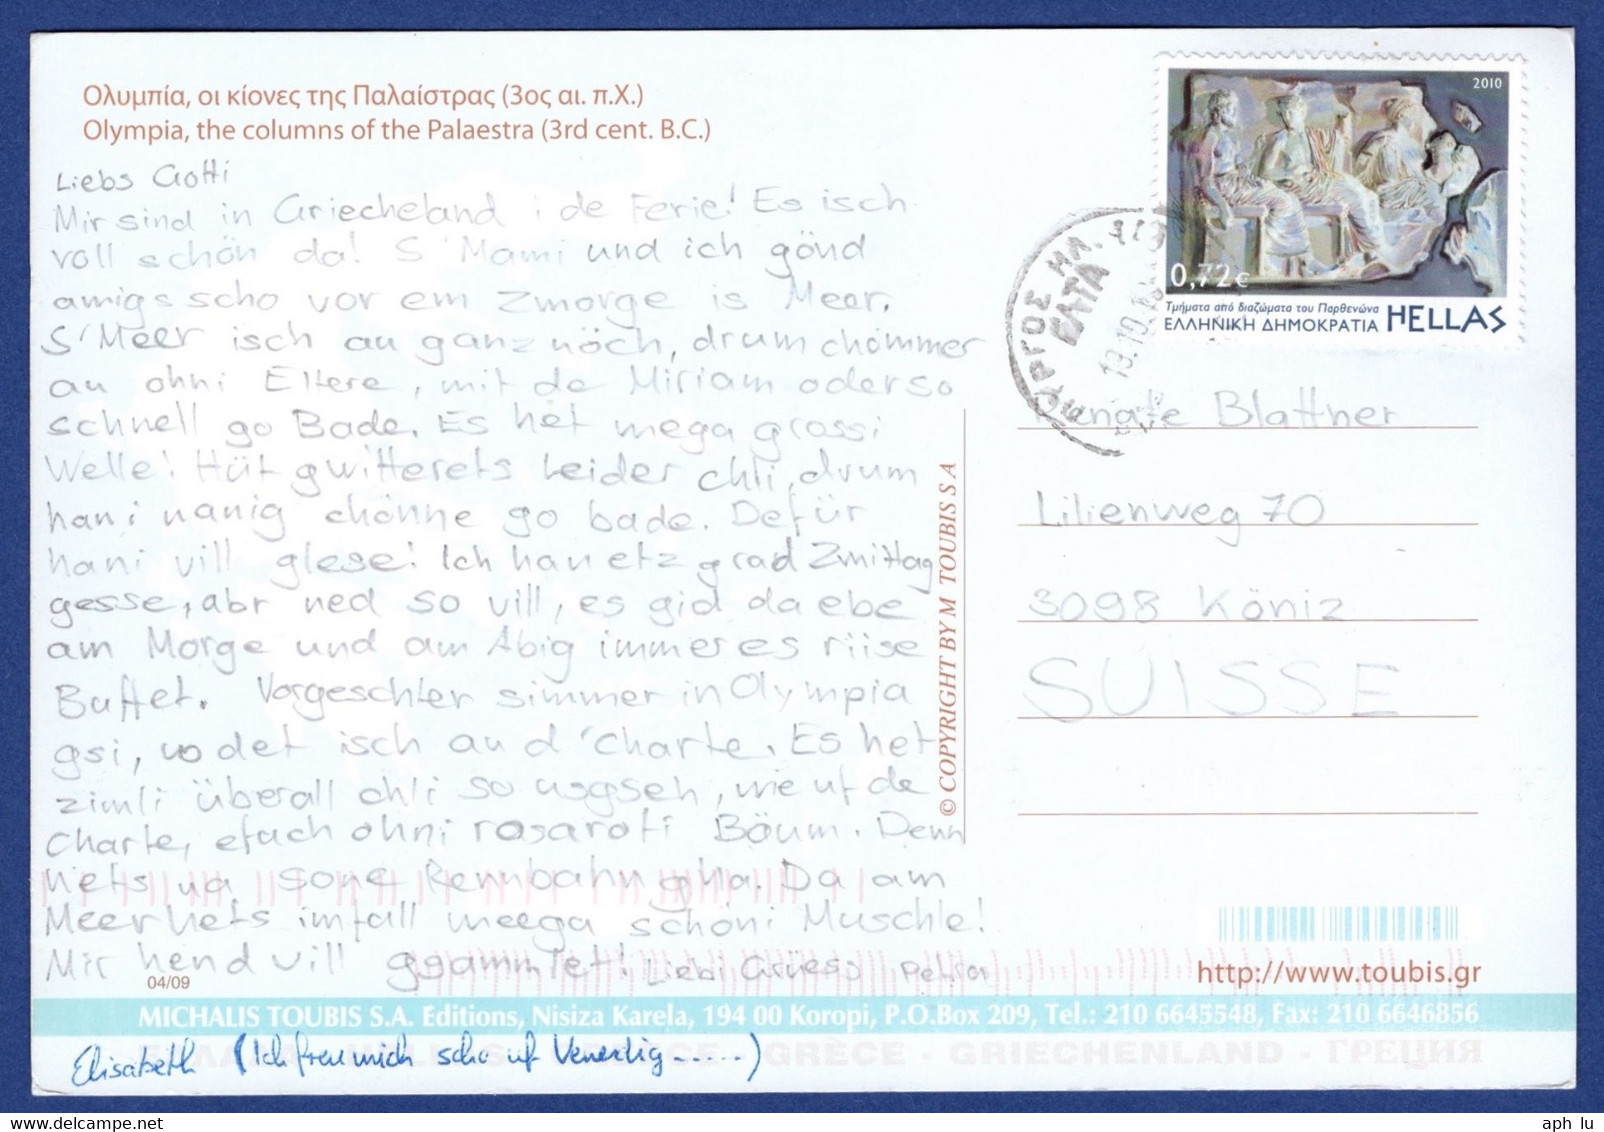 Ολυμπία, οι κίονες της Παλαίστρας (3ος αι. π.Χ.)
Olympia, the columns of the Palaestra (3rd cent. B.C.)
Liebs Gotti
Mir sind in Griecheland i de Ferie! Es isch
voll schön da! S'Mami und ich gönd
amigs scho vor em Zmorge is Meer.
S'Meer isch au ganz nöch, drum chömmer
au ohni Eltere, mit de Miriam oder so
schnell go Bade. Es het mega grossi
Welle! Hüt gwitterets leider chli, drum
hani nanig chönne go bade. Defür
hani vill glese! Ich han etz grad Zmittag
gesse, abr ned so vill, es gid da ebe
am Morge und am Abig immer es riise
Buffet. Vorgeschter simmer in Olympia
gsi, wo det isch au d'Charte. Es het
zimli überall chli so usgseh, wie uf de
Charte, efach ohni rosaroti Böum. Denn
hets na sone Rennbahn gha. Da am
Meer hets imfall meega schöni Muschle!
Mir hend vill gsammlet! Liebi Grüess Petra
Elisabeth (Ich freu mich scho uf Venedig.....)
© COPYRIGHT BY M TOUBIS S A
2010
0,72€
Τμήματα από διαζώματα του Παρθενώνα
ΕΛΛΗΝΙΚΗ ΔΗΜΟΚΡΑΤΙΑ HELLAS
ΠΥΡΓΟΣ ΗΛ.
ΕΛΤΑ
13.10.10
Renate Blattner
Lilienweg 70
3098 Köniz
SUISSE
04/09
http://www.toubis.gr
MICHALIS TOUBIS S.A. Editions, Nisiza Karela, 194 00 Koropi, P.O.Box 209, Tel.: 210 6645548, Fax: 210 6646856
GRÈCE - GRIECHENLAND - ГРЕЦИЯ
aph lu